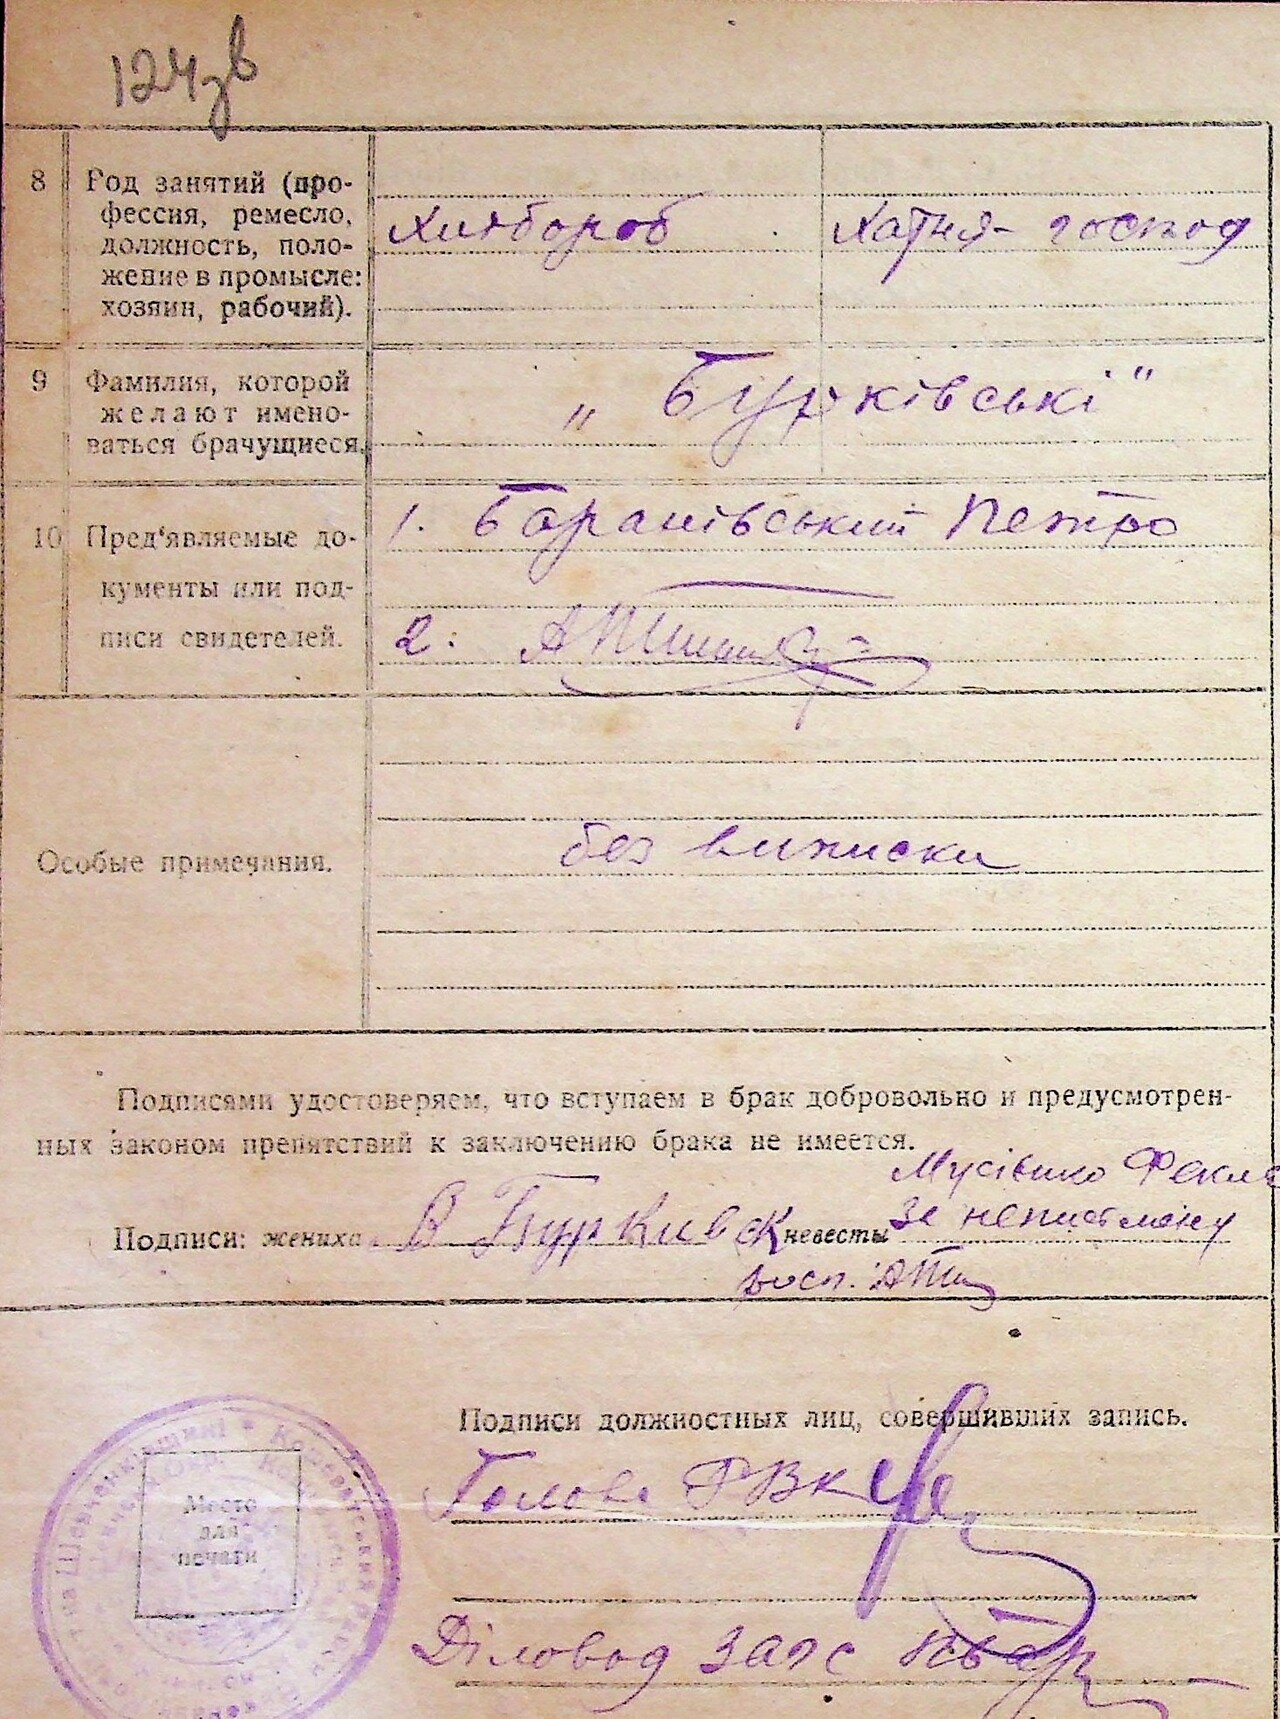 124зв
8 Род занятий (про-
фессия, ремесло,
должность, поло-
жение в промысле:
хозяин, рабочий).
Хлібороб Хатня- господ
9 Фамилия, которой
желают имено-
ваться брачущиеся.
„ Бурківські"
10 Пред'являемые до-
кументы или под-
писи свидетелей.
1. Баранівський Петро
2:
Особые примечания.
без виписки
Подписями удостоверяем, что вступаем в брак добровольно и предусмотрен-
ных законом препятствий к заключению брака не имеется.
Мусієнко Фекла
Подписи: жениха В Буркивск невесты за неписьмену
росп.
Подписи должностных лиц, совершивших запись.
Голова РВК
Место
для
печати
Діловод Загс